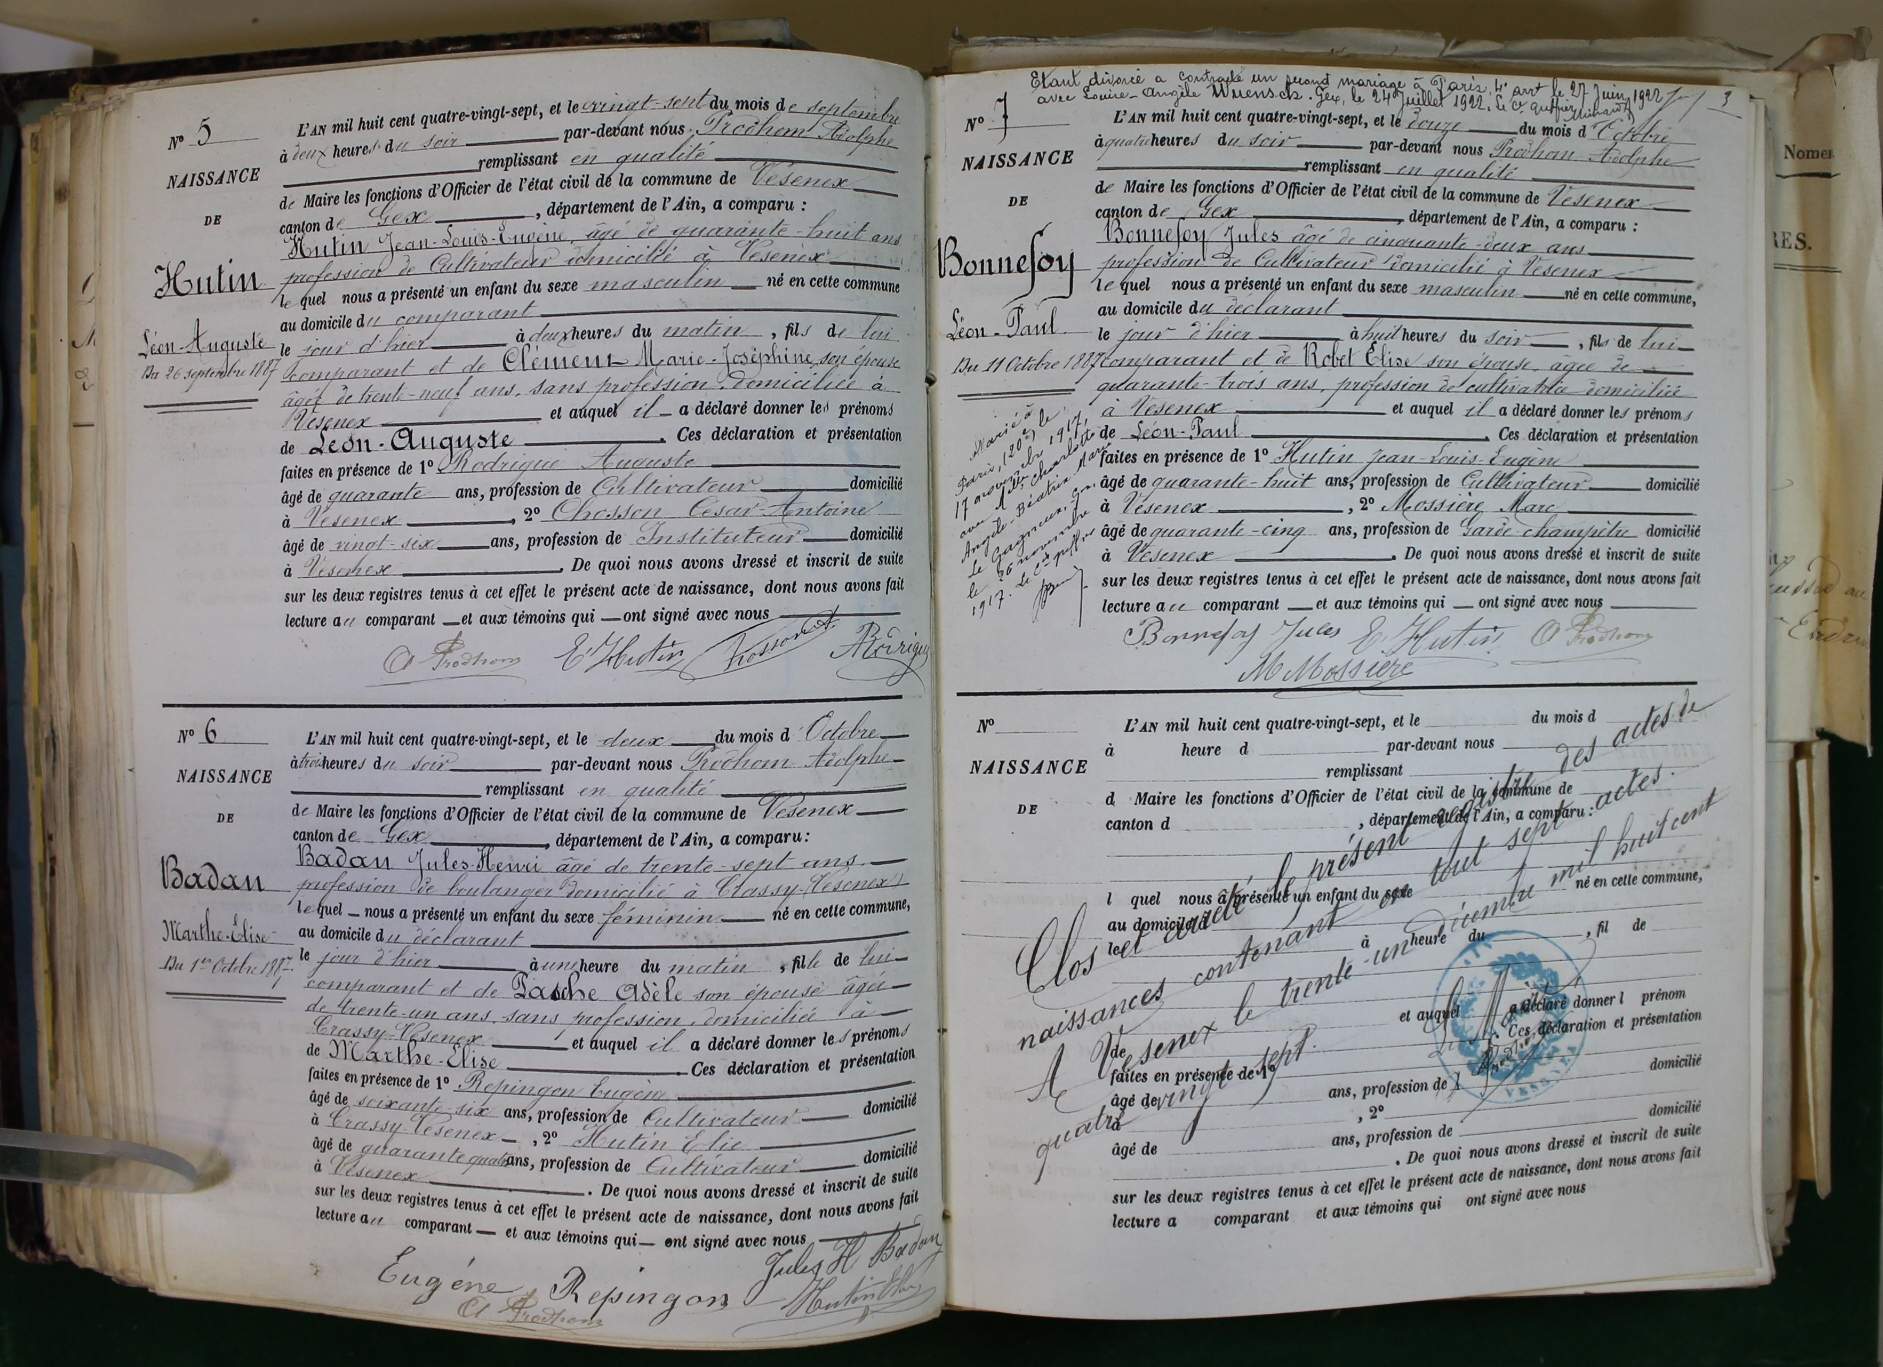 N° 5
NAISSANCE
DE
Hutin
Léon-Auguste
Du 26 septembre 1887
L'AN mil huit cent quatre-vingt-sept, et le vingt-sept du mois de septembre
à deux heures du soir par-devant nous Prodhom Adolphe
remplissant en qualité
de Maire les fonctions d'Officier de l'état civil de la commune de Vésenex
canton de Gex, département de l'Ain, a comparu :
Hutin Jean-Louis-Eugène, âgé de quarante-huit ans
profession de Cultivateur domicilié à Vésenex
lequel nous a présenté un enfant du sexe masculin né en cette commune
au domicile du comparant
le jour d'hier à deux heures du matin, fils de lui
comparant et de Clément Marie-Joséphine, son épouse
âgée de trente-neuf ans, sans profession, domiciliée à
Vésenex et auquel il a déclaré donner les prénoms
de Léon-Auguste. Ces déclaration et présentation
faites en présence de 1° Rodrigue Auguste
âgé de quarante ans, profession de Cultivateur domicilié
à Vésenex, 2° Chosson César-Antoine
âgé de vingt-six ans, profession de Instituteur domicilié
à Vésenex. De quoi nous avons dressé et inscrit de suite
sur les deux registres tenus à cet effet le présent acte de naissance, dont nous avons fait
lecture au comparant et aux témoins qui ont signé avec nous
A Prodhom E. Hutin Chosson A. A Rodrigue
N° 6
NAISSANCE
DE
Badan
Marthe-Elise
Du 1er Octobre 1887.
L'AN mil huit cent quatre-vingt-sept, et le deux du mois d'Octobre
à trois heures du soir par-devant nous Prodhom Adolphe
remplissant en qualité
de Maire les fonctions d'Officier de l'état civil de la commune de Vésenex
canton de Gex, département de l'Ain, a comparu :
Badan Jules-Henri âgé de trente-sept ans
profession de boulanger domicilié à Crassy-(Vésenex)
lequel nous a présenté un enfant du sexe féminin né en cette commune,
au domicile du déclarant
le jour d'hier à une heure du matin, fille de lui
comparant et de Pasche Adèle son épouse âgée
de trente-un ans, sans profession, domiciliée à
Crassy-Vésenex et auquel il a déclaré donner les prénoms
de Marthe-Elise. Ces déclaration et présentation
faites en présence de 1° Repingon Eugène
âgé de soixante-six ans, profession de Cultivateur domicilié
à Crassy Vésenex, 2° Hutin Elie
âgé de quarante quatre ans, profession de Cultivateur domicilié
à Vésenex. De quoi nous avons dressé et inscrit de suite
sur les deux registres tenus à cet effet le présent acte de naissance, dont nous avons fait
lecture au comparant et aux témoins qui ont signé avec nous
Jules H Badan
Eugéne Repingon Hutin Elie
A Prodhom
Etant divorcé a contracté un second mariage à Paris, 4e arrt le 27 Juin 1922
avec Louise-Angèle Gex, le 24 Juillet 1922. Le Cs Greffier
3
N° 7
NAISSANCE
DE
Bonnefoy
Léon-Paul
Du 11 Octobre 1887
Marié à
Paris, (20e) le
17 novembre 1917,
avec Mlle Charlotte
Angèle-Béatrix-Marie
Le Gagneux. Gex,
le 26 novembre
1917. Le Cs greffier
L'AN mil huit cent quatre-vingt-sept, et le douze du mois d'Octobre
à quatre heures du soir par-devant nous Prodhom Adolphe
remplissant en qualité
de Maire les fonctions d'Officier de l'état civil de la commune de Vésenex
canton de Gex, département de l'Ain, a comparu :
Bonnefoy Jules âgé de cinquante-deux ans
profession de Cultivateur domicilié à Vésenex
lequel nous a présenté un enfant du sexe masculin né en cette commune,
au domicile du déclarant
le jour d'hier à huit heures du soir, fils de lui
comparant et de Robet Elise son épouse, âgée de
quarante-trois ans, profession de cultivatrice domiciliée
à Vésenex et auquel il a déclaré donner les prénoms
de Léon-Paul. Ces déclaration et présentation
faites en présence de 1° Hutin Jean-Louis-Eugène
âgé de quarante-huit ans, profession de Cultivateur domicilié
à Vésenex, 2° Mossière Marc
âgé de quarante-cinq ans, profession de Garde champêtre domicilié
à Vésenex. De quoi nous avons dressé et inscrit de suite
sur les deux registres tenus à cet effet le présent acte de naissance, dont nous avons fait
lecture au comparant et aux témoins qui ont signé avec nous
Bonnefoy Jules E. Hutin A Prodhom
M Mossière
N°
NAISSANCE
DE
L'AN mil huit cent quatre-vingt-sept, et le du mois d
à heure d par-devant nous
remplissant
d Maire les fonctions d'Officier de l'état civil de la commune de
canton d , département de l'Ain, a comparu :
l quel nous a présenté un enfant du sexe né en cette commune,
au domicile d
le à heure du , fil de
et auquel a déclaré donner l prénom
de . Ces déclaration et présentation
faites en présence de 1°
âgé de ans, profession de domicilié
à , 2°
âgé de ans, profession de domicilié
. De quoi nous avons dressé et inscrit de suite
sur les deux registres tenus à cet effet le présent acte de naissance, dont nous avons fait
lecture a comparant et aux témoins qui ont signé avec nous
Clos et arrêté le présent registre des actes de
naissances contenant en tout sept actes.
A Vésenex le trente-un Décembre mil huit cent
quatre vingt sept.
Nomer
RES.